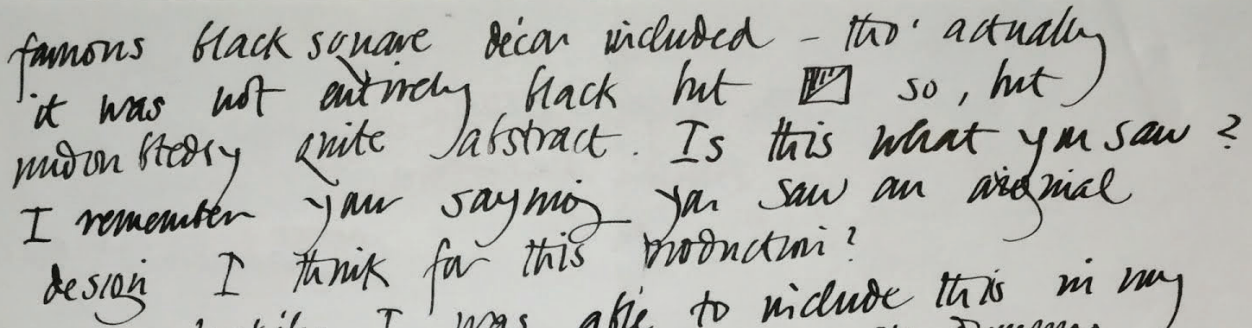 famous black square décor included – tho' actually
it was not entirely black but so, but
undoubtedly quite abstract. Is this what you saw?
I remember your saying you saw an original
design I think for this production?
I was able to include this in my